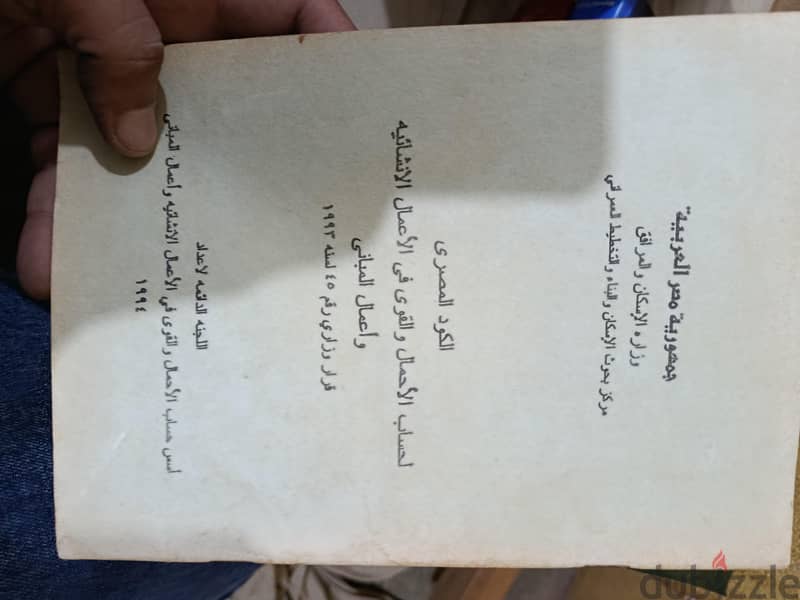 جمهورية مصر العربية
وزاره الإسكان والمرافق
مركز بحوث الإسكان والبناء والتخطيط العمراني
الكود المصرى
لحساب الأحمال والقوى فى الأعمال الانشائيه
وأعمال المبانى
قرار وزاري رقم ٤٥ لسنه ١٩٩٣
اللجنه الدائمه لاعداد
أسس حساب الأحمال والقوى في الأعمال الانشائيه وأعمال المبانى
١٩٩٤
dubizzle